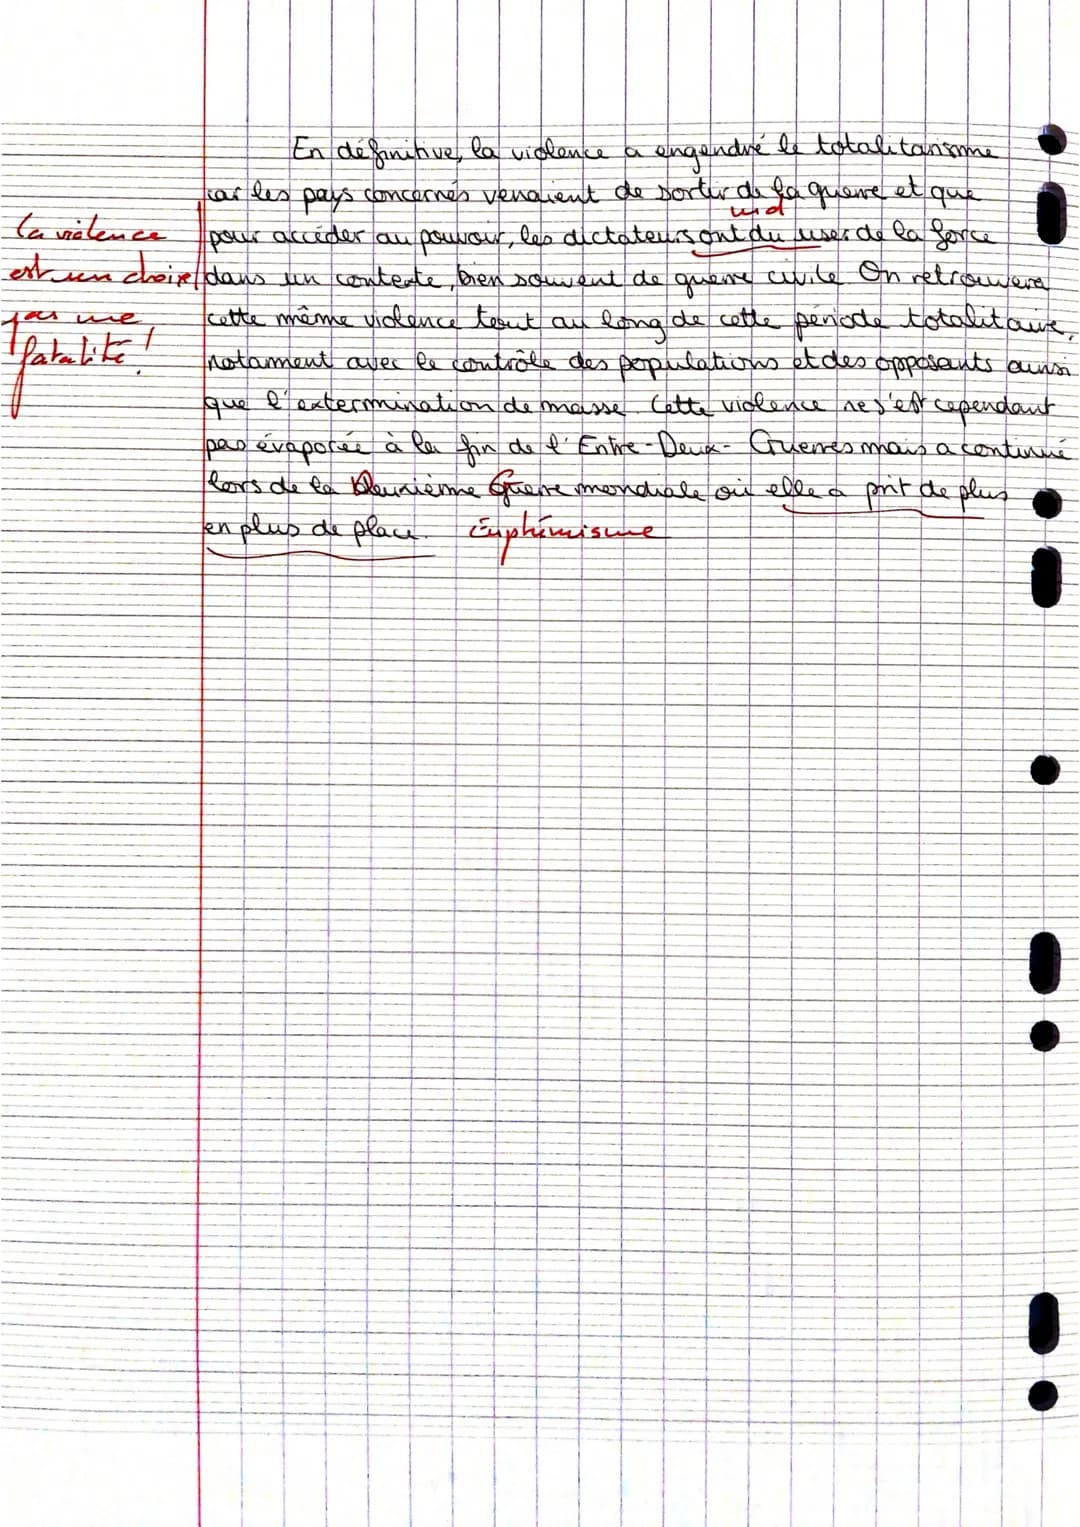 En définitive, la violence a engendré le totalitarisme
car les pays concernés venaient de sortir de la guerre et que
pour accéder au pouvoir, les dictateurs ont du user de la force
dans un contexte, bien souvent de guerre civile. On retrouvera
cette même violence tout au long de cette période totalitaire,
notamment avec le contrôle des populations et des opposants ainsi
que l'extermination de masse. Cette violence ne s'est cependant
pas évaporée à la fin de l'Entre-Deux-Guerres mais a continué
lors de la Deuxième Guerre mondiale où elle a prit de plus
en plus de place. Euphémisme
La violence
est un choix
pas une
fatalité !